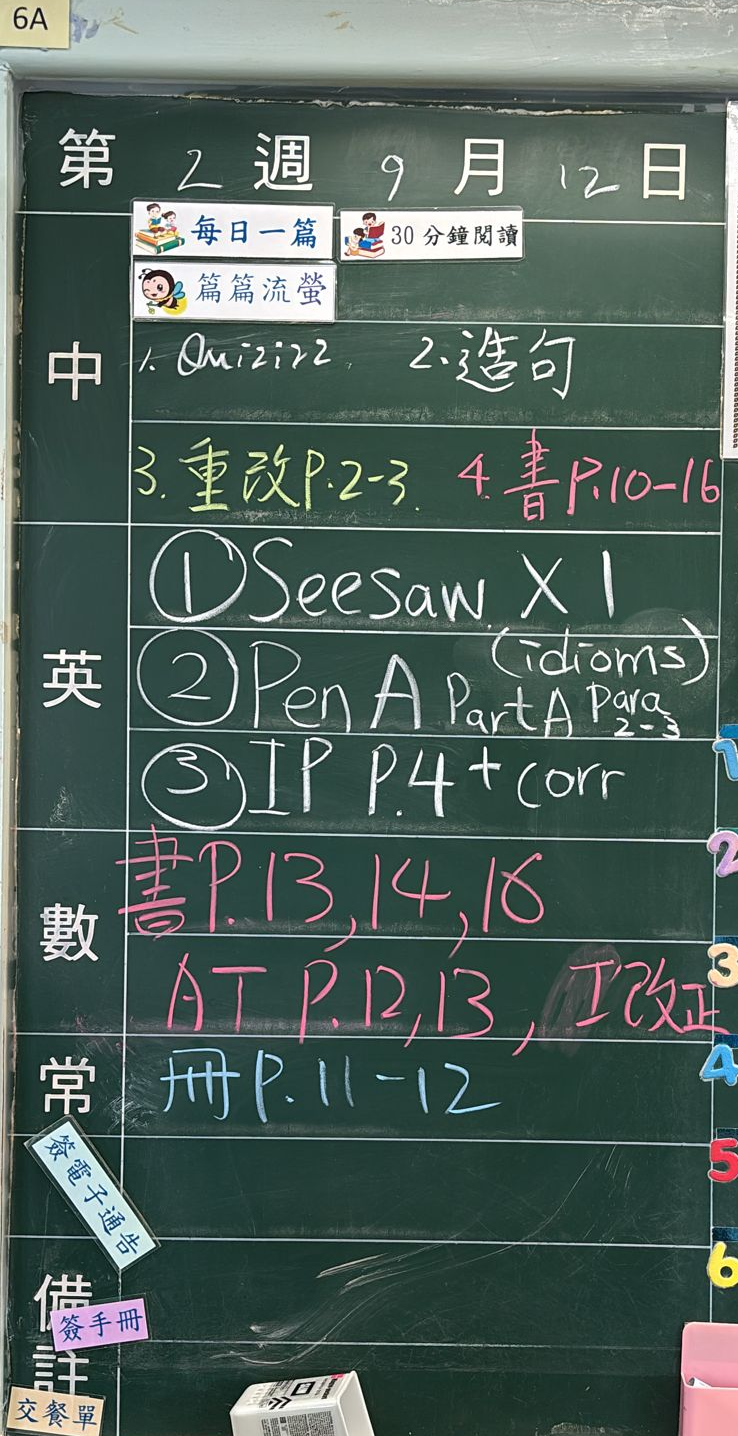 6A
第 2 週 9 月 12 日
每日一篇 30分鐘閱讀
篇篇流螢
中
1. Quizizz. 2. 造句
3. 重改P.2-3. 4. 書P.10-16
英
① Seesaw X 1
② Pen A Part A Para 2-3 (idioms)
③ IP P.4 + corr
數
書P.13, 14, 16
AT P.12, 13, 工改正
常
冊P.11-12
簽電子通告
備註
簽手冊
交餐單
1
2
3
4
5
6